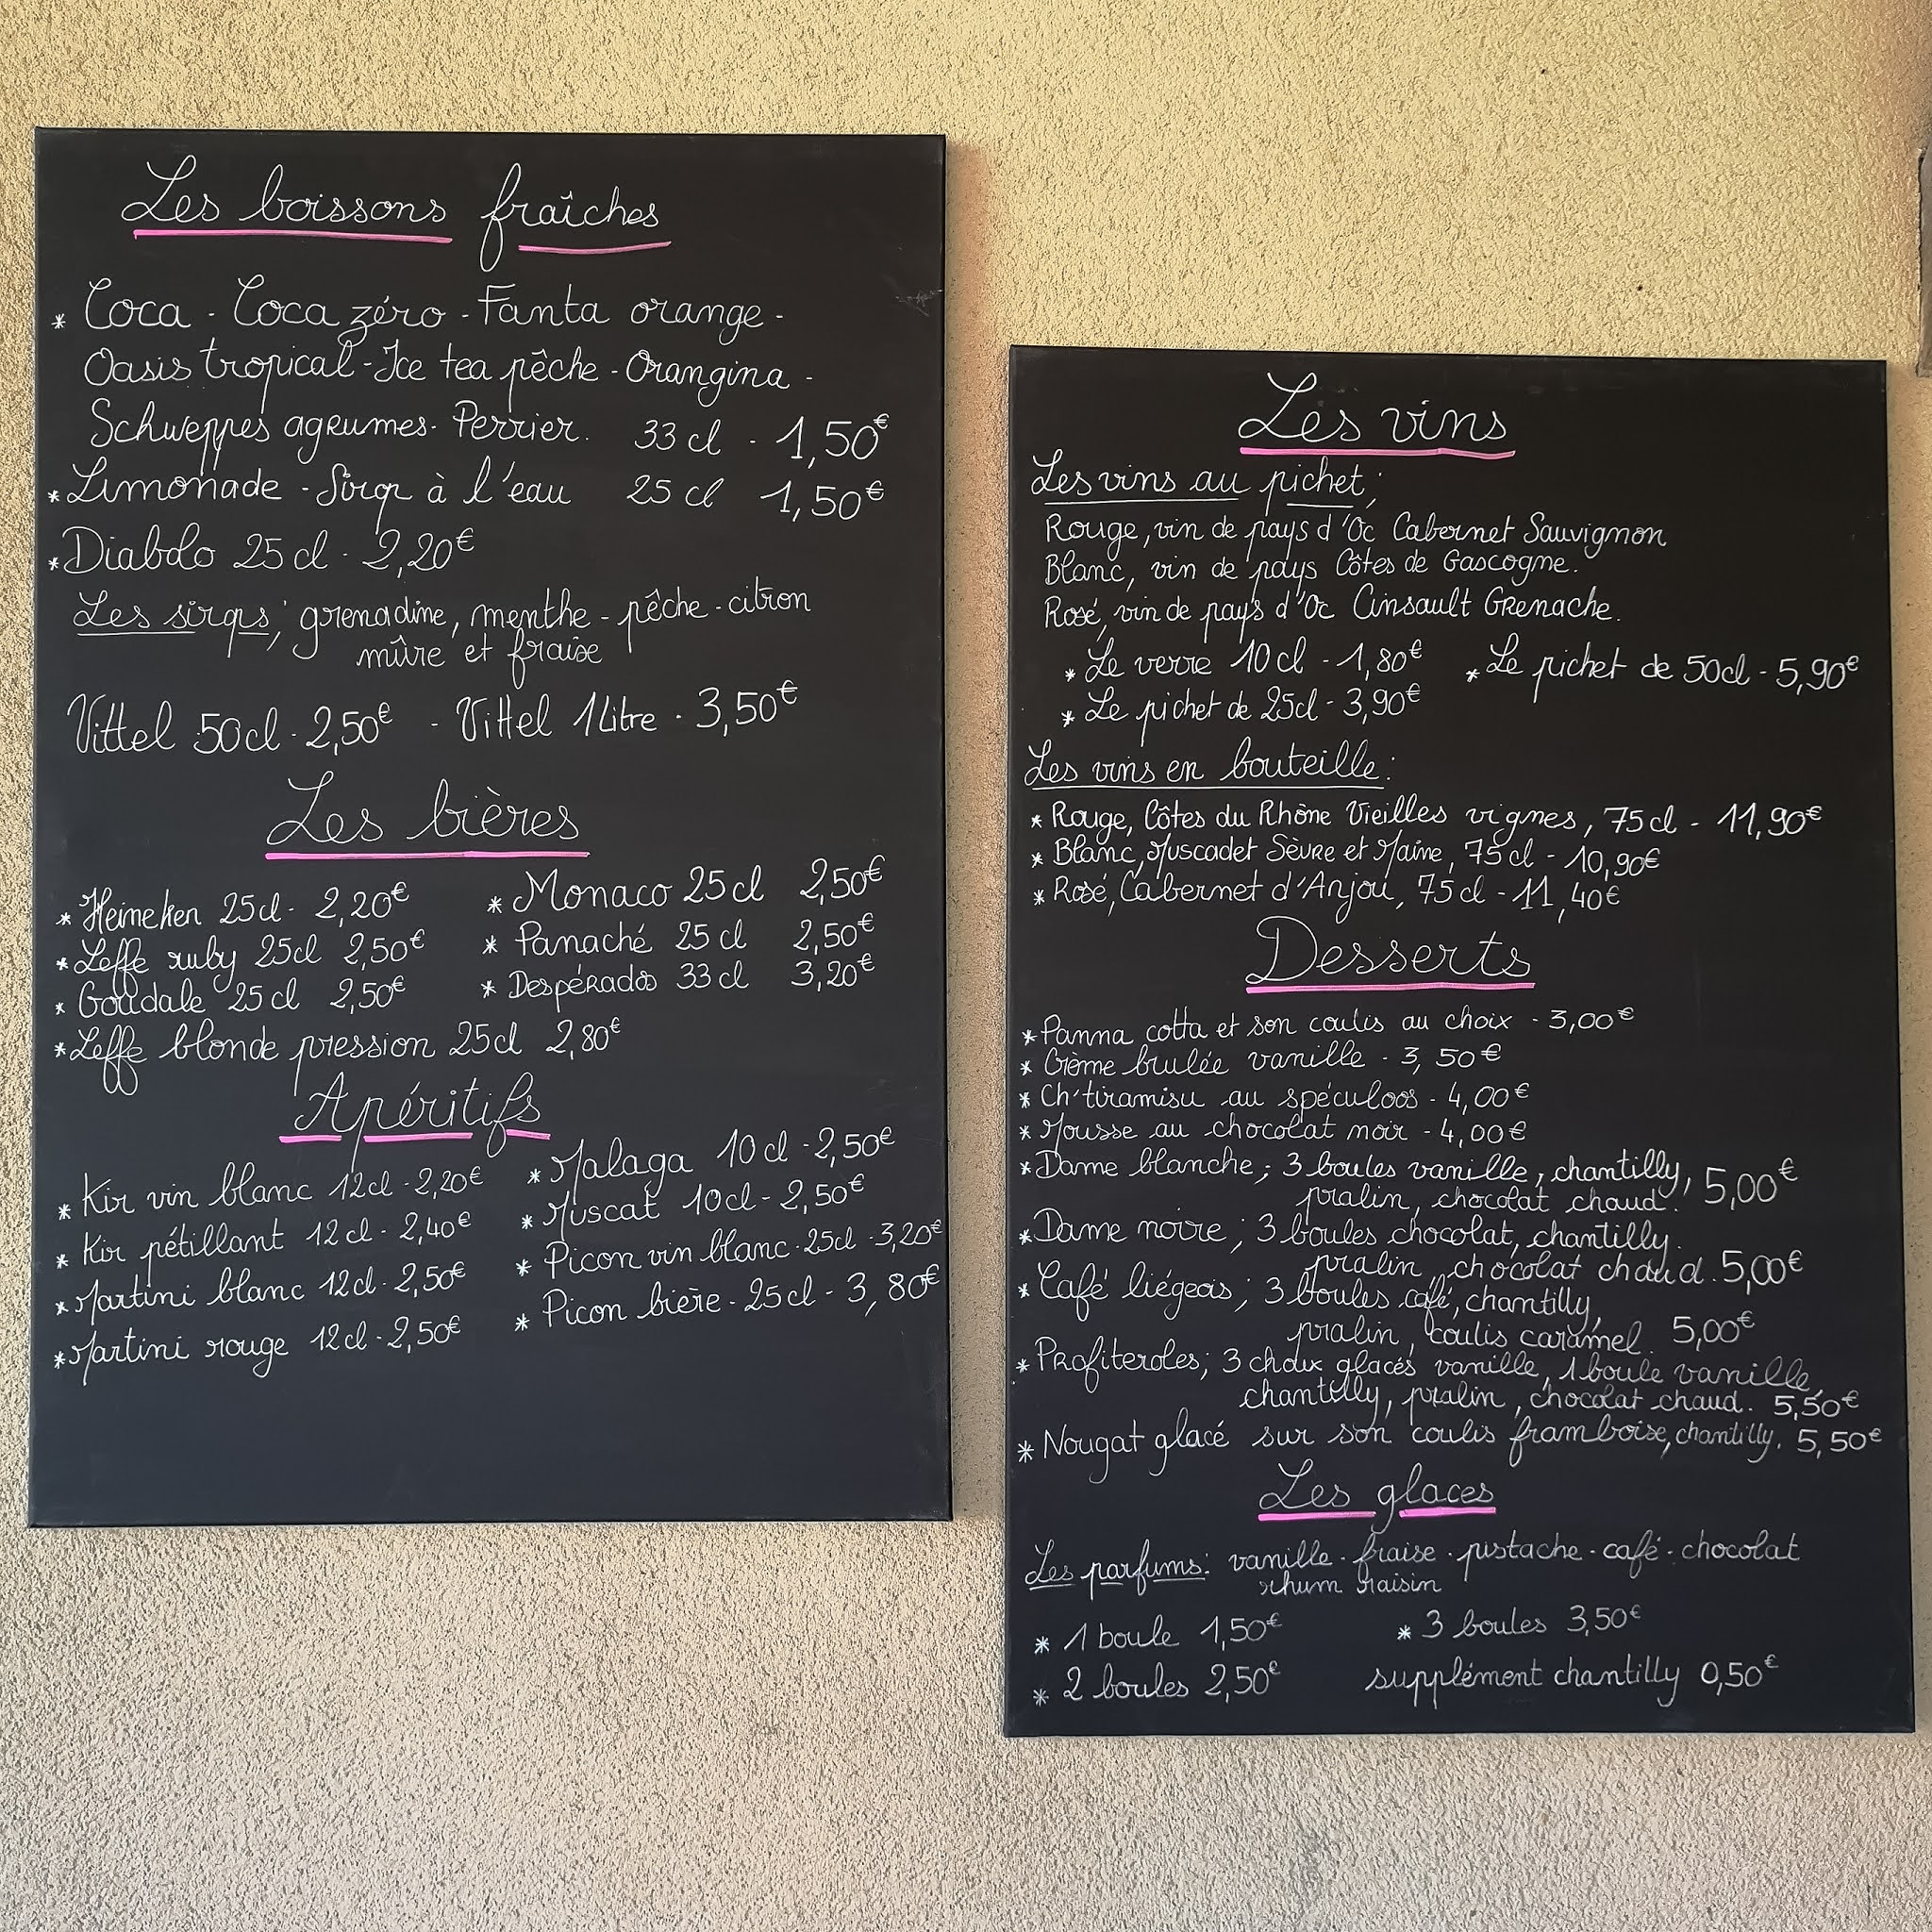 Les boissons fraîches
* Coca - Coca zéro - Fanta orange -
Oasis tropical - Ice tea pêche - Orangina -
Schweppes agrumes - Perrier. 33 cl - 1,50€
* Limonade - Sirop à l'eau 25 cl 1,50€
* Diabolo 25 cl - 2,20€
Les sirops; grenadine, menthe - pêche - citron
mûre et fraise
Vittel 50cl - 2,50€ - Vittel 1 Litre - 3,50€
Les bières
* Heineken 25cl - 2,20€
* Leffe ruby 25cl 2,50€
* Goudale 25 cl 2,50€
* Leffe blonde pression 25cl 2,80€
* Monaco 25 cl 2,50€
* Panaché 25 cl 2,50€
* Despérados 33 cl 3,20€
Apéritifs
* Kir vin blanc 12cl - 2,20€
* Kir pétillant 12 cl - 2,40€
* Martini blanc 12cl - 2,50€
* Martini rouge 12cl - 2,50€
* Malaga 10 cl - 2,50€
* Muscat 10cl - 2,50€
* Picon vin blanc - 25cl - 3,20€
* Picon bière - 25 cl - 3,80€
Les vins
Les vins au pichet;
Rouge, vin de pays d'Oc Cabernet Sauvignon
Blanc, vin de pays Côtes de Gascogne.
Rosé, vin de pays d'Oc Cinsault Grenache.
* Le verre 10 cl - 1,80€ * Le pichet de 50cl - 5,90€
* Le pichet de 25cl - 3,90€
Les vins en bouteille:
* Rouge, Côtes du Rhône Vieilles vignes, 75 cl - 11,90€
* Blanc, Muscadet Sèvre et Maine, 75 cl - 10,90€
* Rosé, Cabernet d'Anjou, 75 cl - 11,40€
Desserts
* Panna cotta et son coulis au choix - 3,00€
* Crème brulée vanille - 3,50€
* Ch'tiramisu au spéculoos - 4,00€
* Mousse au chocolat noir - 4,00€
* Dame blanche; 3 boules vanille, chantilly,
pralin, chocolat chaud. 5,00€
* Dame noire; 3 boules chocolat, chantilly.
pralin, chocolat chaud. 5,00€
* Café liégeois; 3 boules café, chantilly,
pralin, coulis caramel. 5,00€
* Profiteroles; 3 choux glacés vanille, 1 boule vanille,
chantilly, pralin, chocolat chaud. 5,50€
* Nougat glacé sur son coulis framboise, chantilly. 5,50€
Les glaces
Les parfums: vanille - fraise - pistache - café - chocolat
rhum raisin
* 1 boule 1,50€ * 3 boules 3,50€
* 2 boules 2,50€ supplément chantilly 0,50€